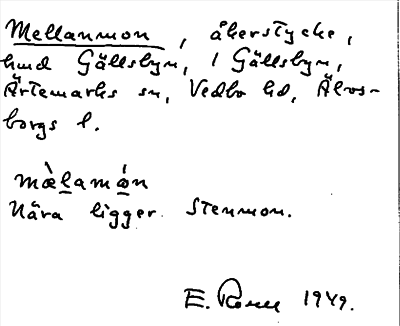 Mellanmon, åkerstycke,
hmd Gällsbyn, i Gällsbyn,
Ärtemarks sn, Vedbo hd, Älvs-
borgs l.
mæ̀lamón
Nära ligger Stenmon.
E. 1949.